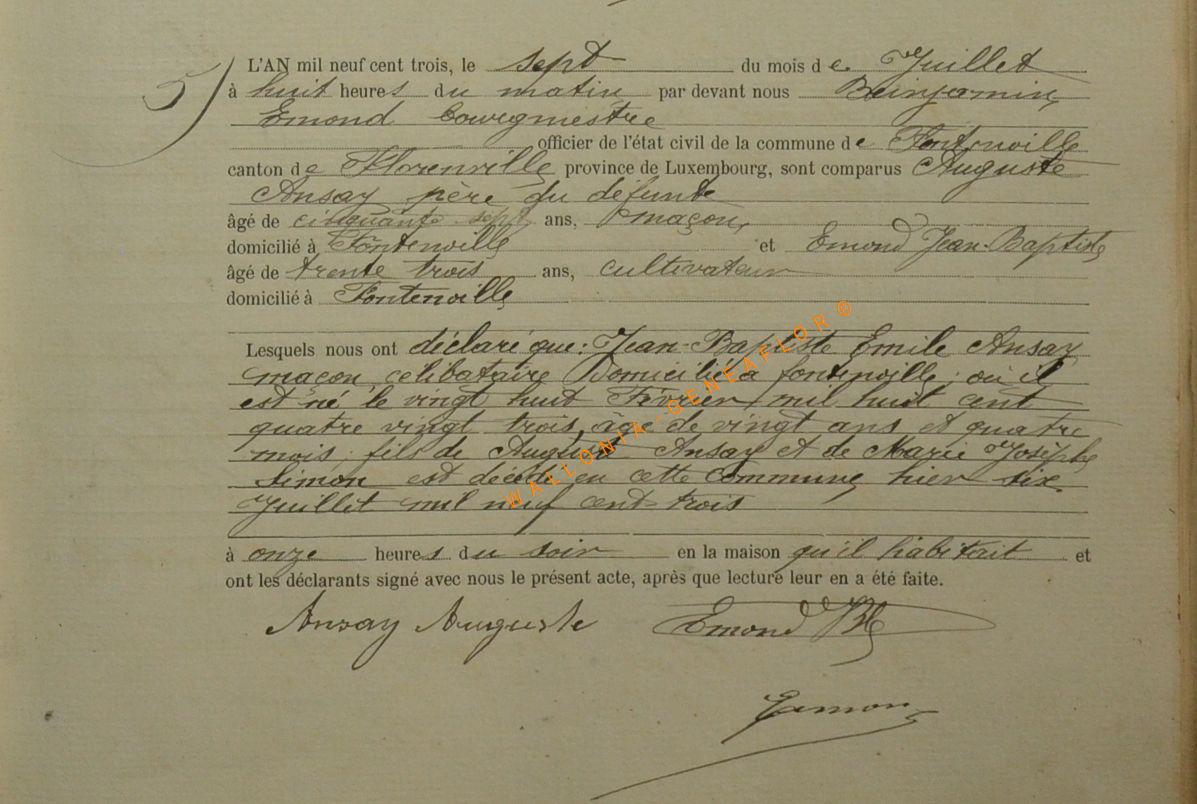 5)
L'AN mil neuf cent trois, le sept du mois de Juillet
à huit heures du matin par devant nous Beinjamin
Emond bourgmestre
officier de l'état civil de la commune de Fontenoille
canton de Florenville province de Luxembourg, sont comparus Auguste
Ansay père du défunt
âgé de cinquante sept ans, maçon,
domicilié à Fontenoille et Emond Jean-Baptiste
âgé de trente trois ans, cultivateur
domicilié à Fontenoille
Lesquels nous ont déclaré que: Jean-Baptiste Emile Ansay
maçon, célibataire Domicilié à fontenoille, où il
est né le vingt huit Février mil huit cent
quatre vingt trois, âgé de vingt ans et quatre
mois, fils de Auguste Ansay et de Marie Josèphe
Simon est décédé en cette Commune, hier six
Juillet mil neuf cent trois
à onze heures du soir en la maison qu'il habitait et
ont les déclarants signé avec nous le présent acte, après que lecture leur en a été faite.
Ansay Auguste Emond JB
Emond
WALLONIA-GENEAFLOR ©